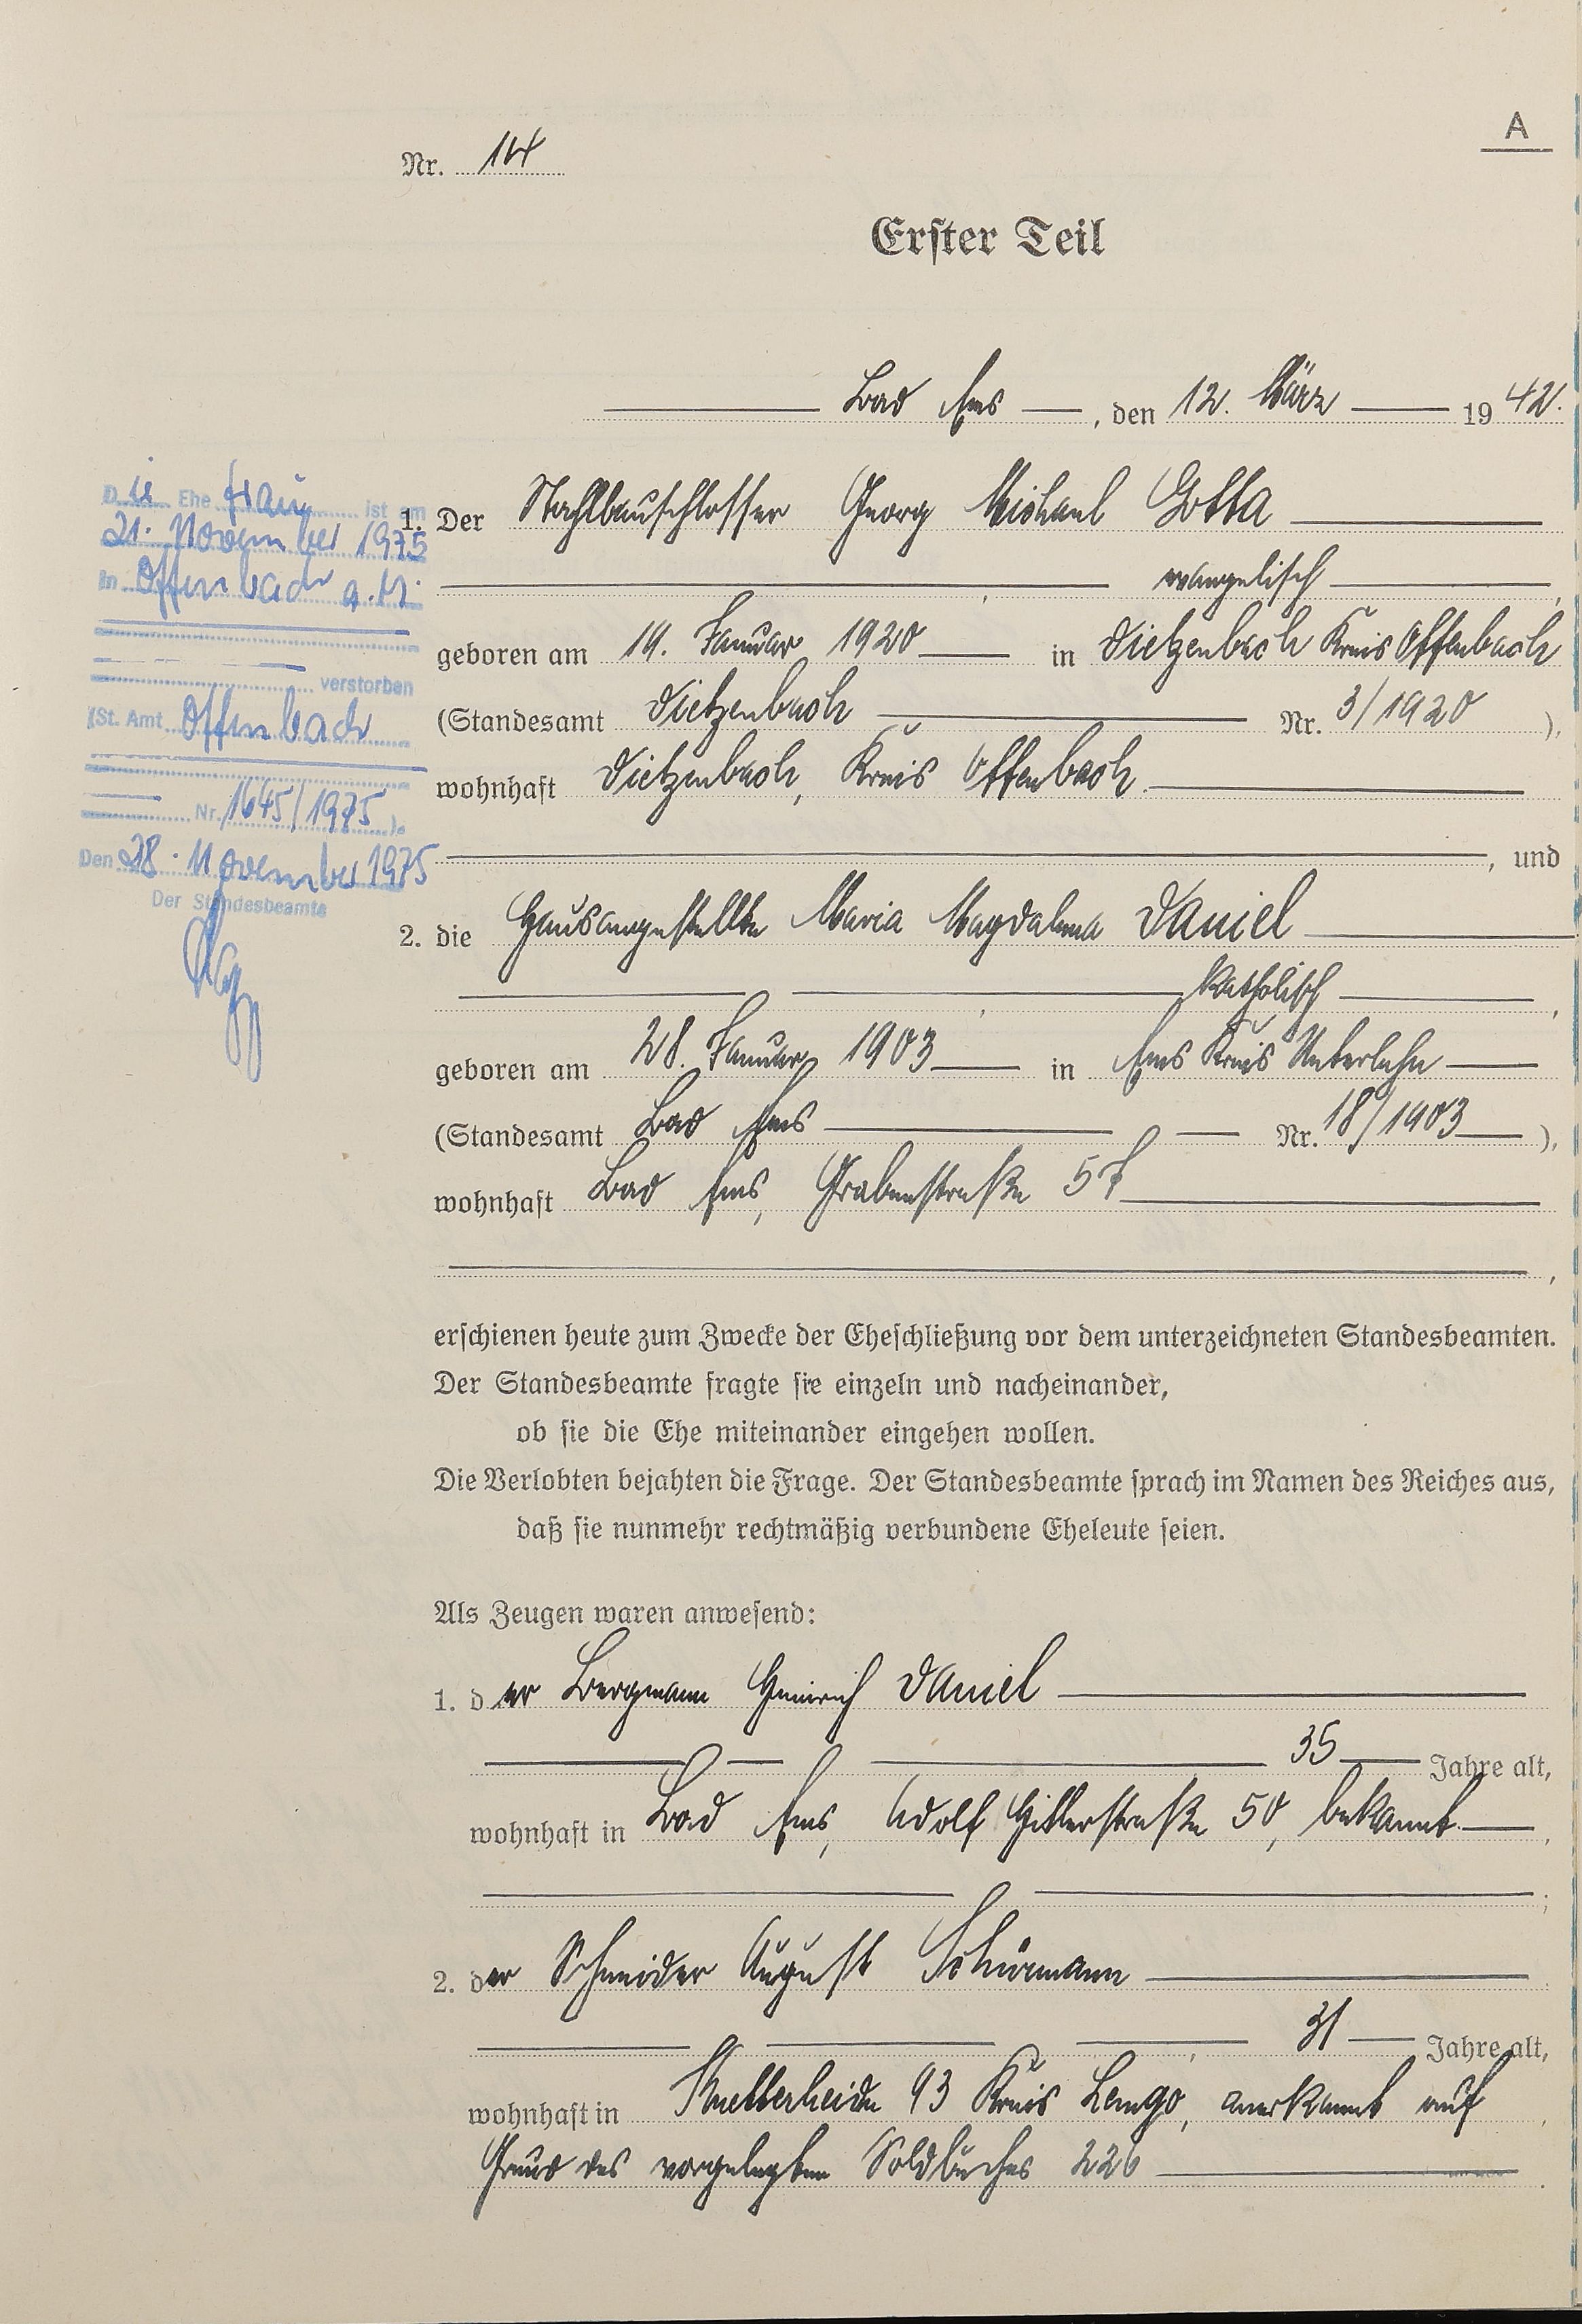 A
Nr. 14
Erster Teil
Bad Ems, den 12. März 1942.
Die Ehefrau ist am
21. November 1975
in Offenbach a. M.
verstorben
(St. Amt Offenbach
Nr. 1645/1975).
Den 28. November 1975
Der Standesbeamte
1. Der Stahlbauschlosser Georg Michael Gotta
, evangelisch,
geboren am 19. Januar 1920 in Dietzenbach Kreis Offenbach
(Standesamt Dietzenbach Nr. 3/1920),
wohnhaft Dietzenbach, Kreis Offenbach.
, und
2. die Hausangestellte Maria Magdalena Daniel
, katholisch,
geboren am 28. Januar 1903 in Ems Kreis Unterlahn
(Standesamt Bad Ems Nr. 18/1903),
wohnhaft Bad Ems, Grabenstraße 57
,
erschienen heute zum Zwecke der Eheschließung vor dem unterzeichneten Standesbeamten.
Der Standesbeamte fragte sie einzeln und nacheinander,
ob sie die Ehe miteinander eingehen wollen.
Die Verlobten bejahten die Frage. Der Standesbeamte sprach im Namen des Reiches aus,
daß sie nunmehr rechtmäßig verbundene Eheleute seien.
Als Zeugen waren anwesend:
1. der Bergmann Heinrich Daniel
35 Jahre alt,
wohnhaft in Bad Ems, Adolf Hitlerstraße 50, bekannt,
;
2. der Schneider August Schürmann
, 31 Jahre alt,
wohnhaft in Knetterheide 93 Kreis Lemgo, anerkannt auf
Grund des vorgelegten Soldbuches 226.